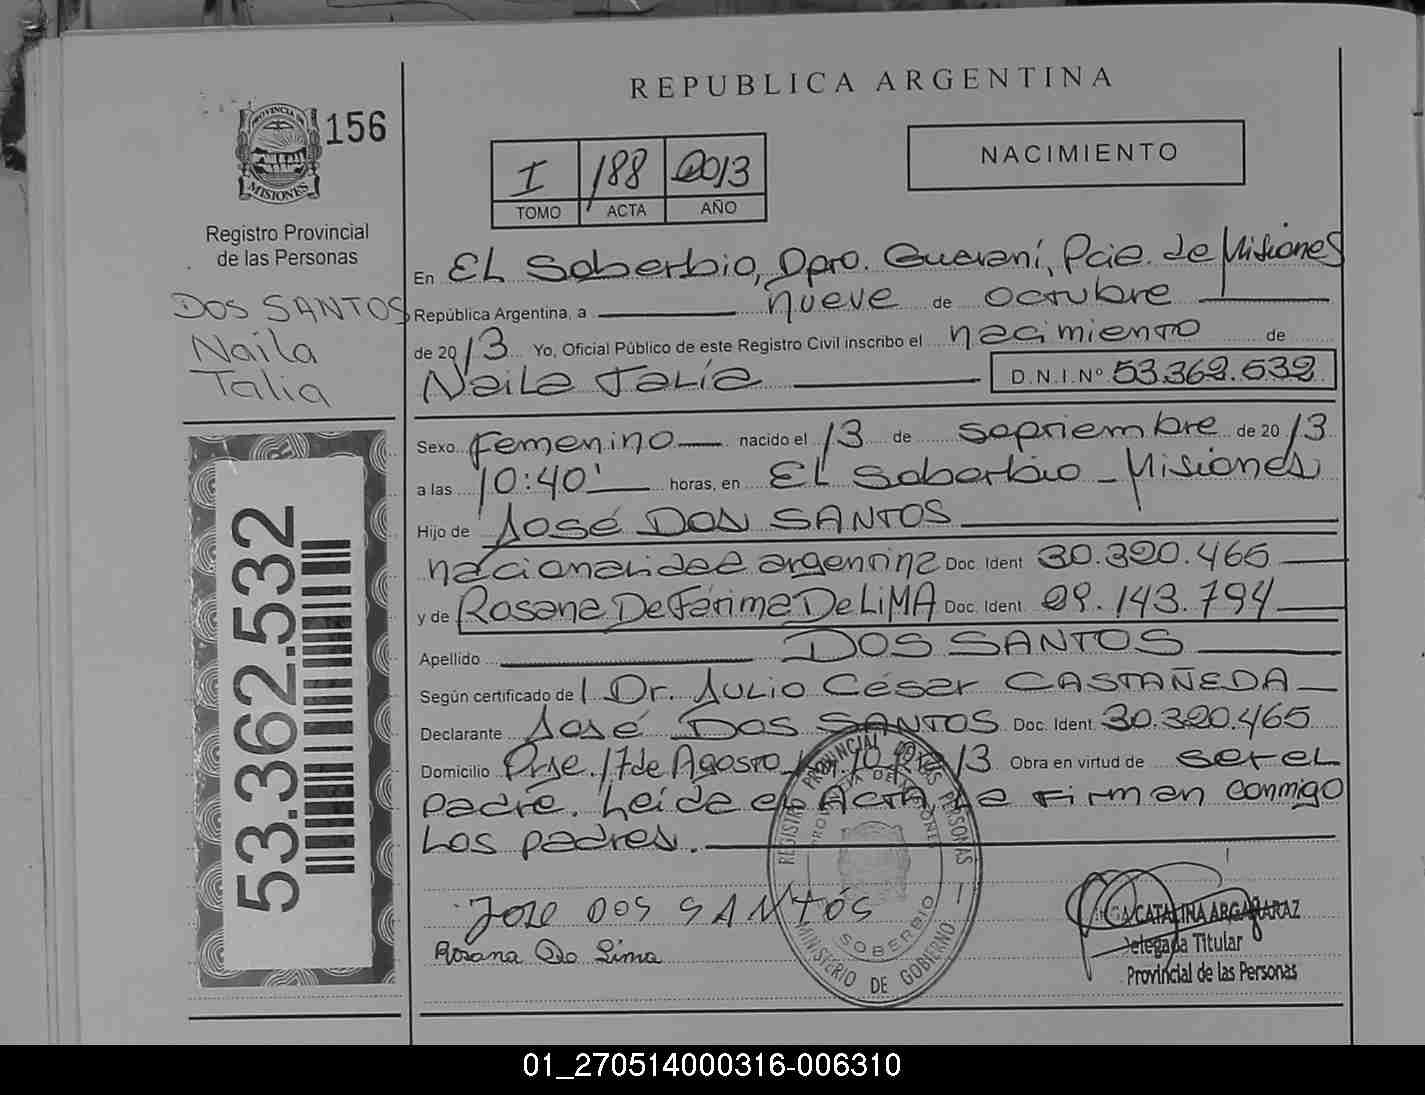 REPUBLICA ARGENTINA
PROVINCIA DE
MISIONES
156
Registro Provincial
de las Personas
DOS SANTOS
Naila
Talia
53.362.532
I 188 2013
TOMO ACTA AÑO
NACIMIENTO
En EL Soberbio, Dpto. Guaraní, Pcia. de Misiones
República Argentina, a nueve de octubre
de 2013 Yo, Oficial Público de este Registro Civil inscribo el nacimiento de
Naila Talía D.N.I.Nº 53.362.532
Sexo Femenino nacido el 13 de septiembre de 2013
a las 10:40' horas, en EL Soberbio - Misiones
Hijo de José DOS SANTOS
nacionalidad argentina Doc. Ident 30.320.465
y de Rosana De Fátima De LiMA Doc. Ident. 09.143.794
Apellido DOS SANTOS
Según certificado de l Dr. Julio César CASTAÑEDA
Declarante José DOS SANTOS Doc. Ident. 30.320.465
Domicilio Prje. 17 de Agosto 13 Obra en virtud de ser el
padre. Leída el ACTA, la firman conmigo
Los padres.
REGISTRO PROVINCIAL DE LAS PERSONAS
PROVINCIA DE MISIONES
SOBERBIO
MINISTERIO DE GOBIERNO
JOSE DOS SANTOS
Rosana De Lima
CATALINA ARGAÑARAZ
Delegada Titular
Provincial de las Personas
01_270514000316-006310